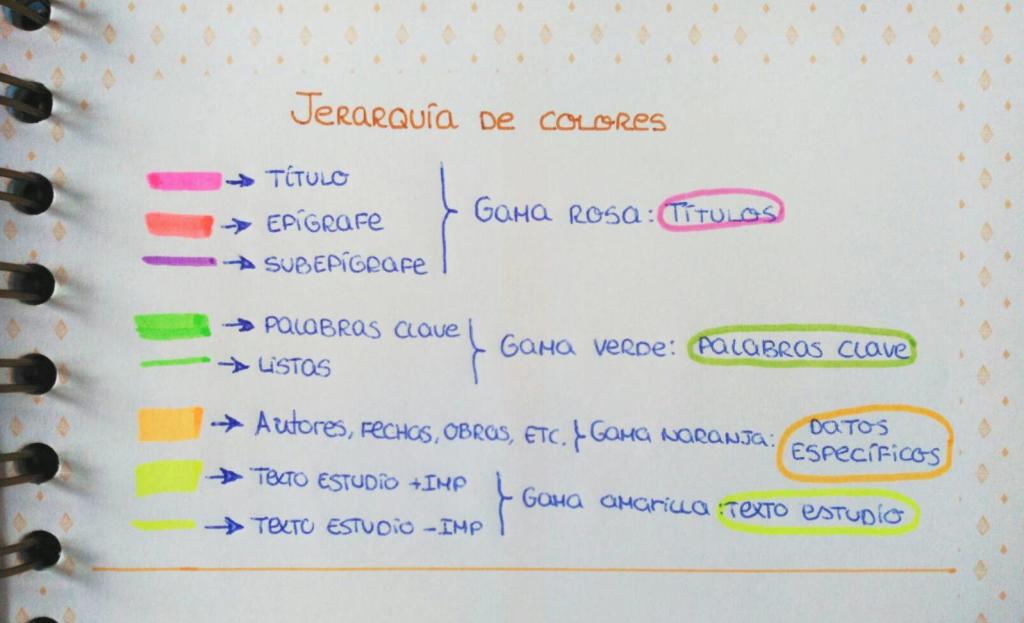 JERARQUÍA DE COLORES
→ TÍTULO
→ EPÍGRAFE
→ SUBEPÍGRAFE
} GAMA ROSA: TÍTULOS
→ PALABRAS CLAVE
→ LISTAS
} GAMA VERDE: PALABRAS CLAVE
→ AUTORES, FECHAS, OBRAS, ETC. } GAMA NARANJA: DATOS
ESPECÍFICOS
→ TEXTO ESTUDIO +IMP
→ TEXTO ESTUDIO -IMP
} GAMA AMARILLA: TEXTO ESTUDIO